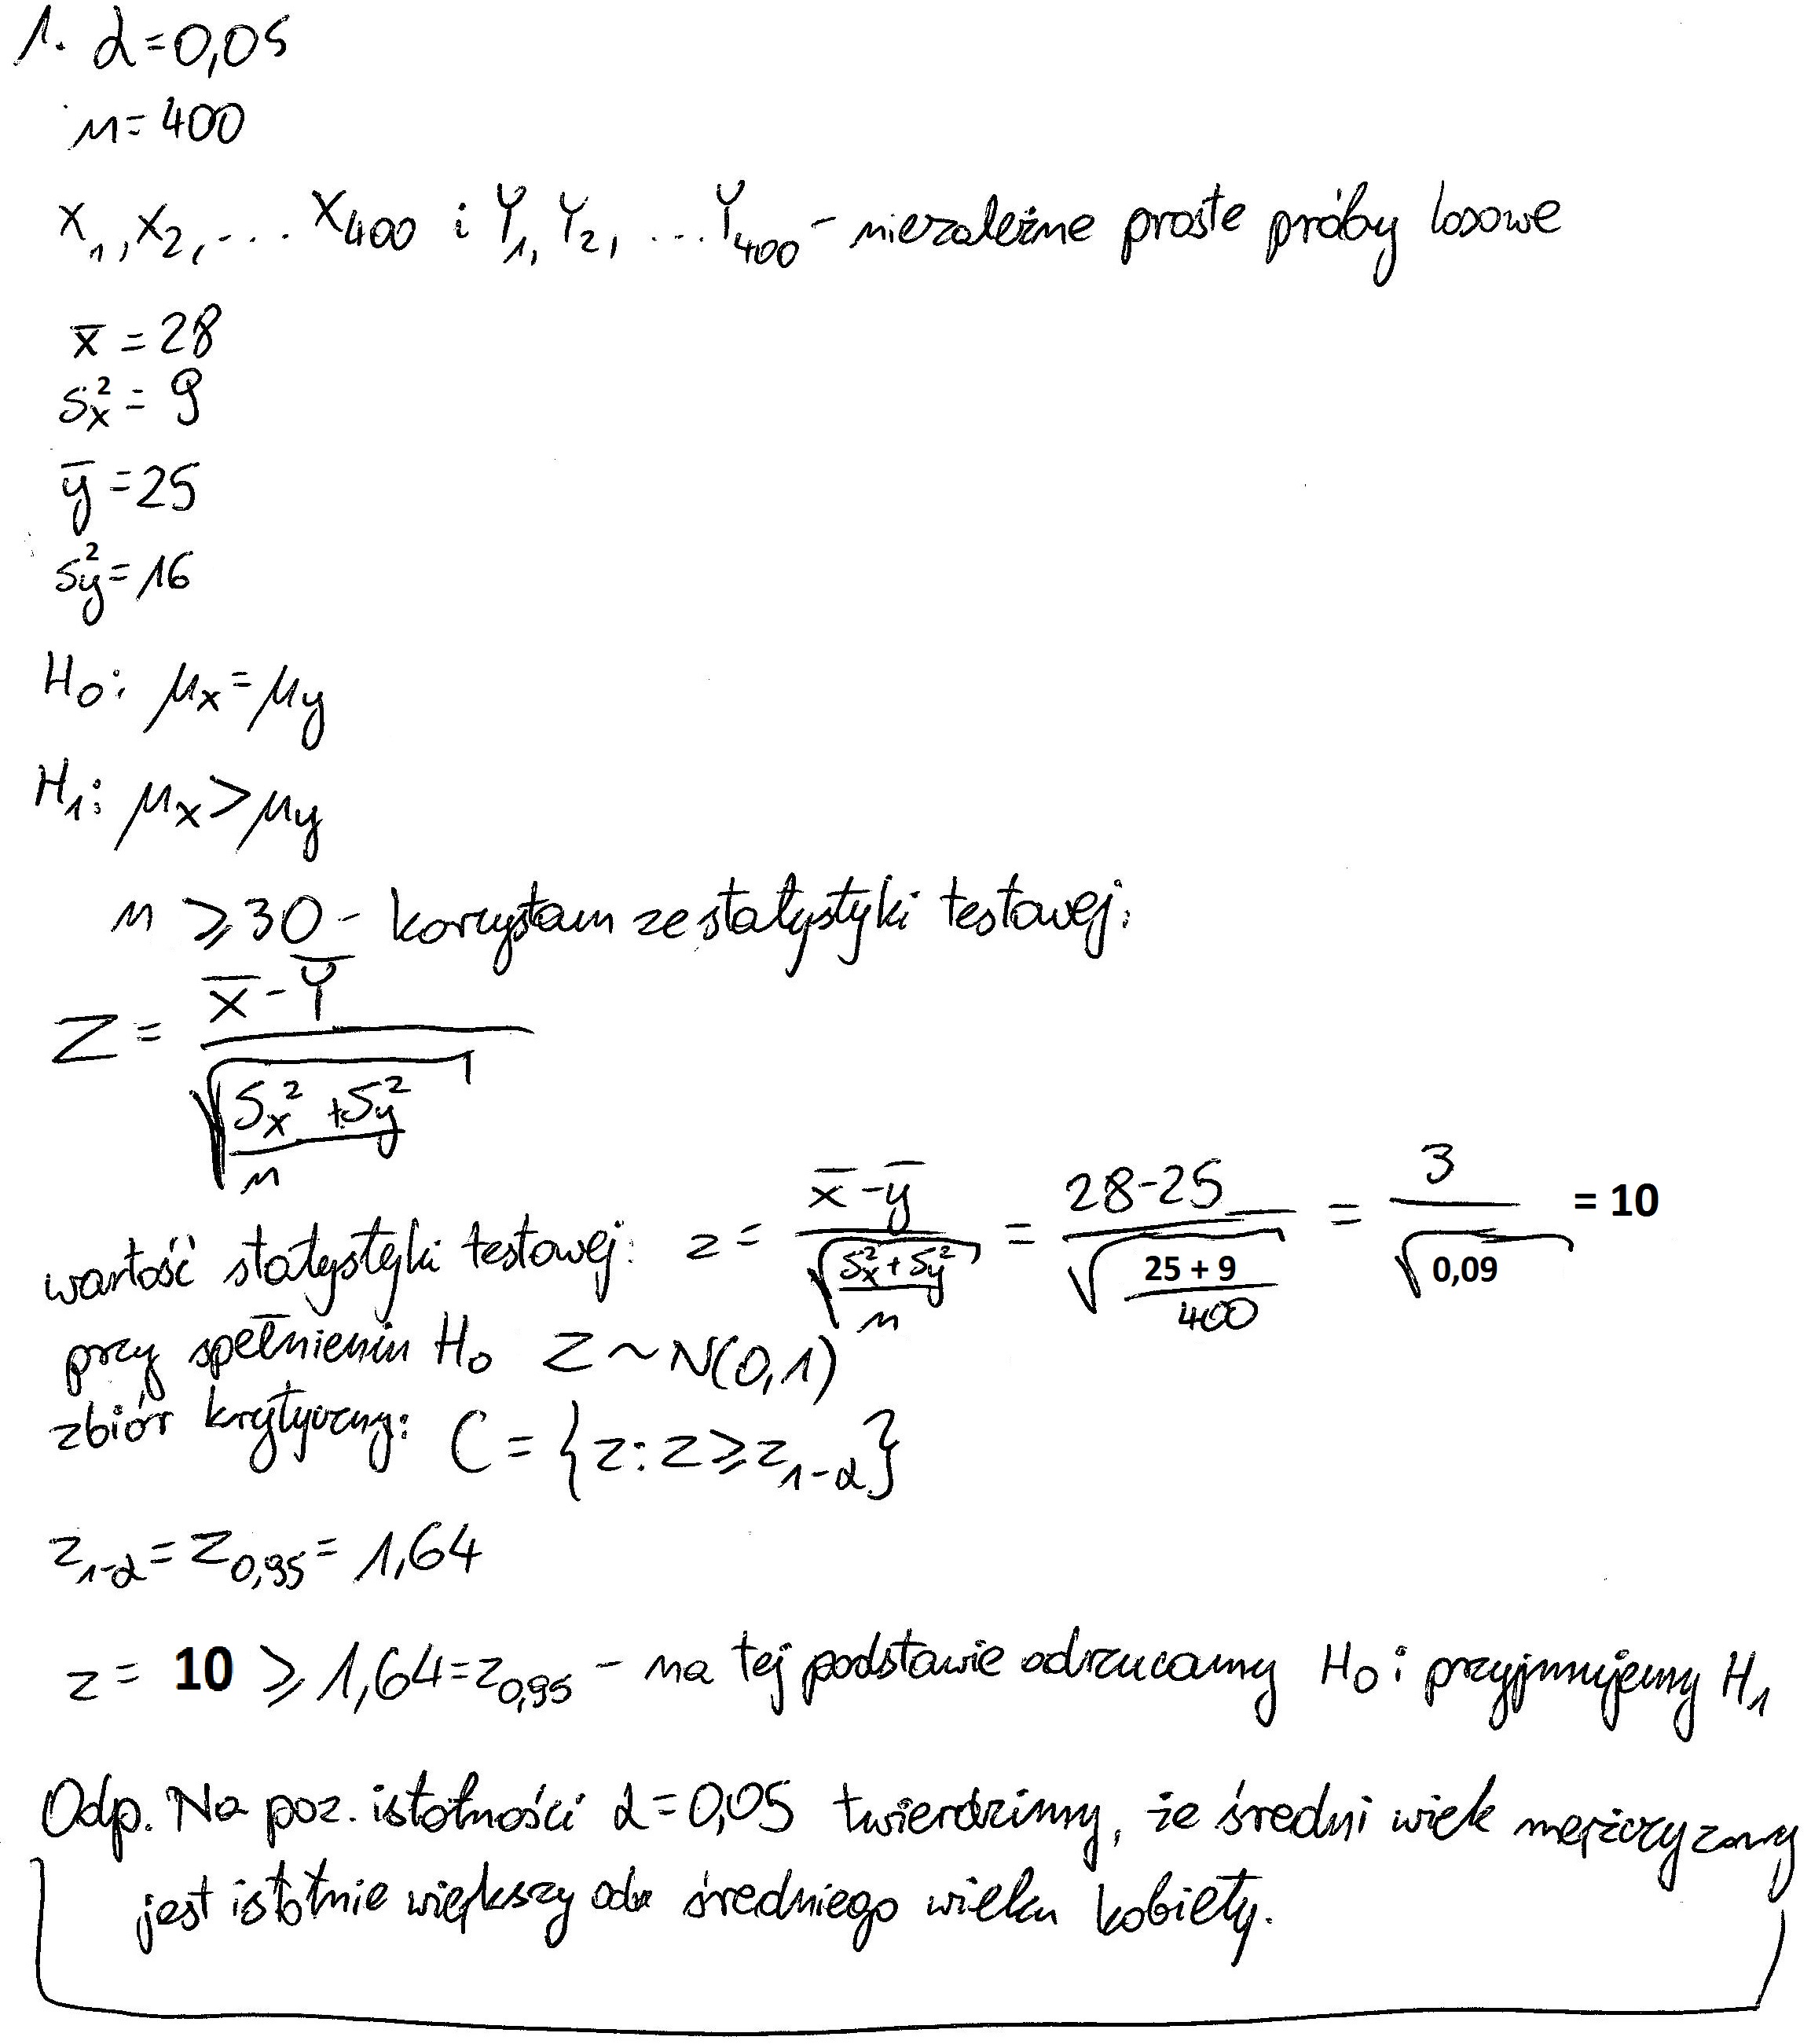 1. α=0,05
n=400
X₁, X₂, ... X₄₀₀ i Y₁, Y₂, ... Y₄₀₀ - niezależne proste próby losowe
x̅ = 28
Sₓ² = 9
y̅ = 25
Sy² = 16
H₀: μx = μy
H₁: μx > μy
n ≥ 30 - korzystam ze statystyki testowej:
Z = (X̅ - Y̅) / √((Sx² + Sy²) / n)
wartość statystyki testowej: z = (x̅ - y̅) / √((Sx² + Sy²) / n) = (28-25) / √((25 + 9) / 400) = 3 / √(0,09) = 10
przy spełnieniu H₀ Z ~ N(0,1)
zbiór krytyczny: C = {z: z ≥ z₁₋α}
z₁₋α = z₀,₉₅ = 1,64
z = 10 ≥ 1,64 = z₀,₉₅ - na tej podstawie odrzucamy H₀ i przyjmujemy H₁
Odp. Na poz. istotności α=0,05 twierdzimy, że średni wiek mężczyzny
jest istotnie większy od średniego wieku kobiety.